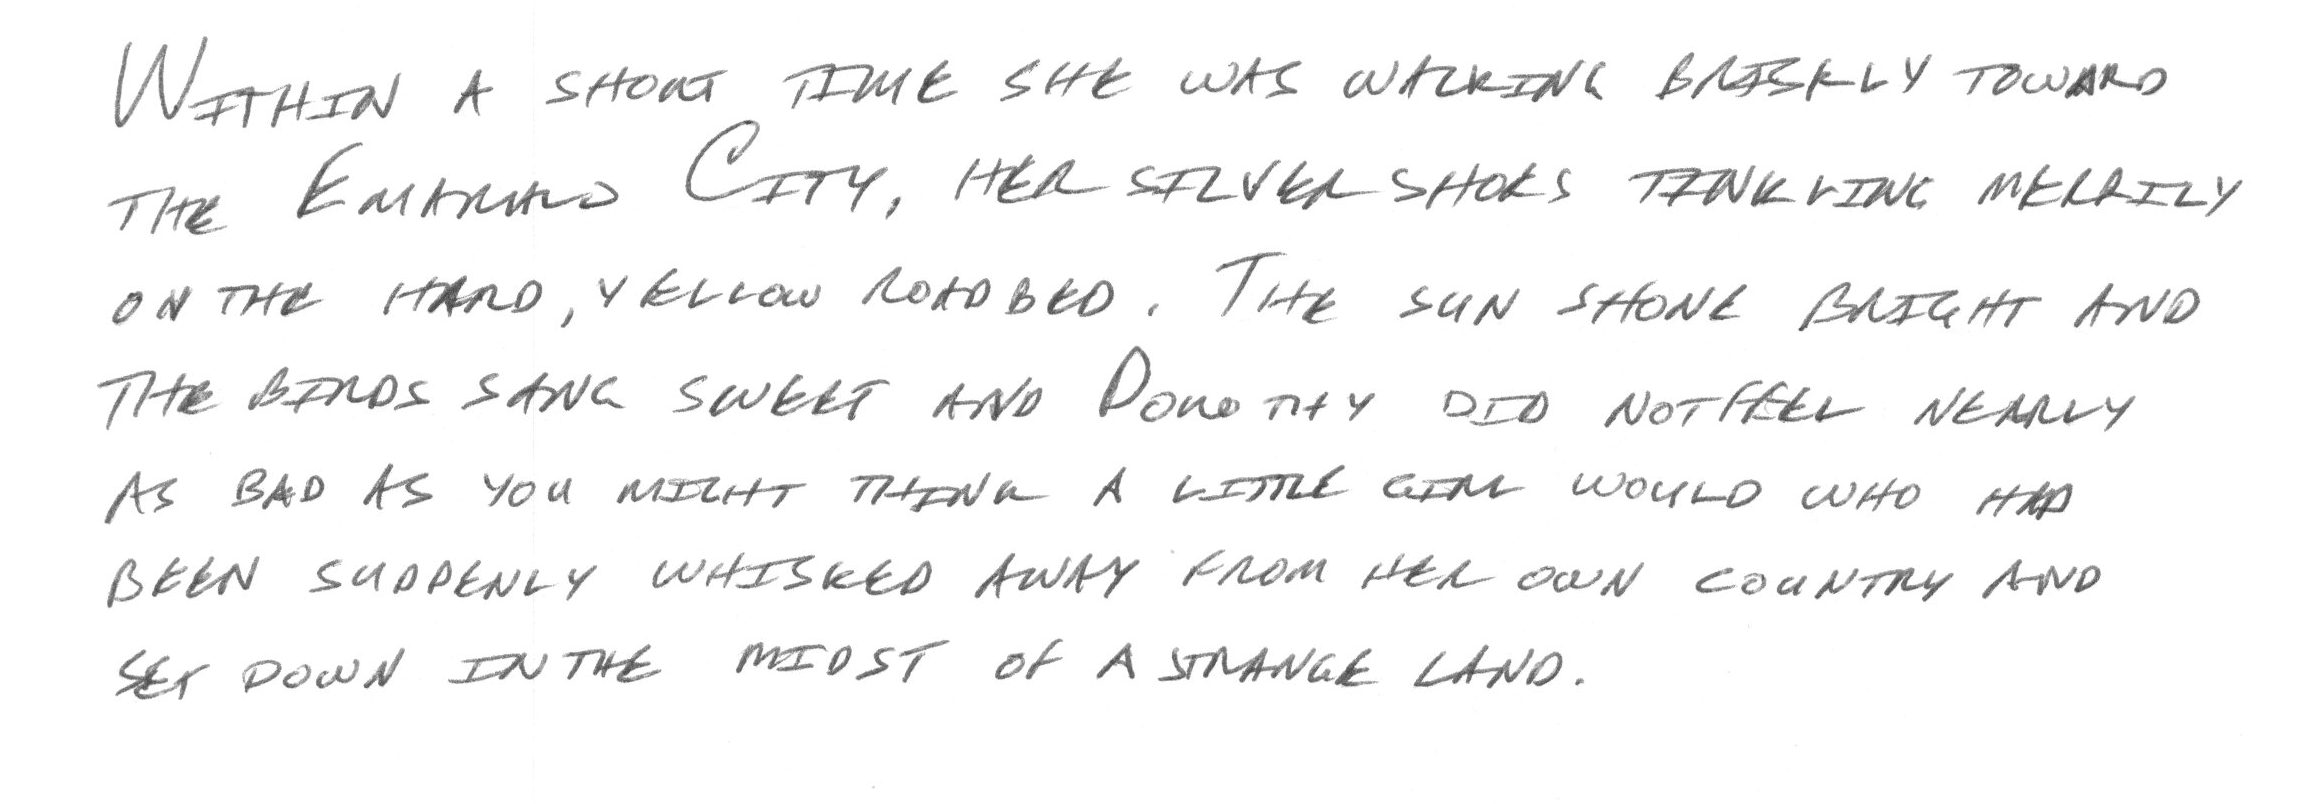 Within a short time she was walking briskly toward
the Emarald City, her silver shoes tinkling merrily
on the hard, yellow roadbed. The sun shone bright and
the birds sang sweet and Dorothy did not feel nearly
as bad as you might think a little girl would who had
been suddenly whisked away from her own country and
set down in the midst of a strange land.